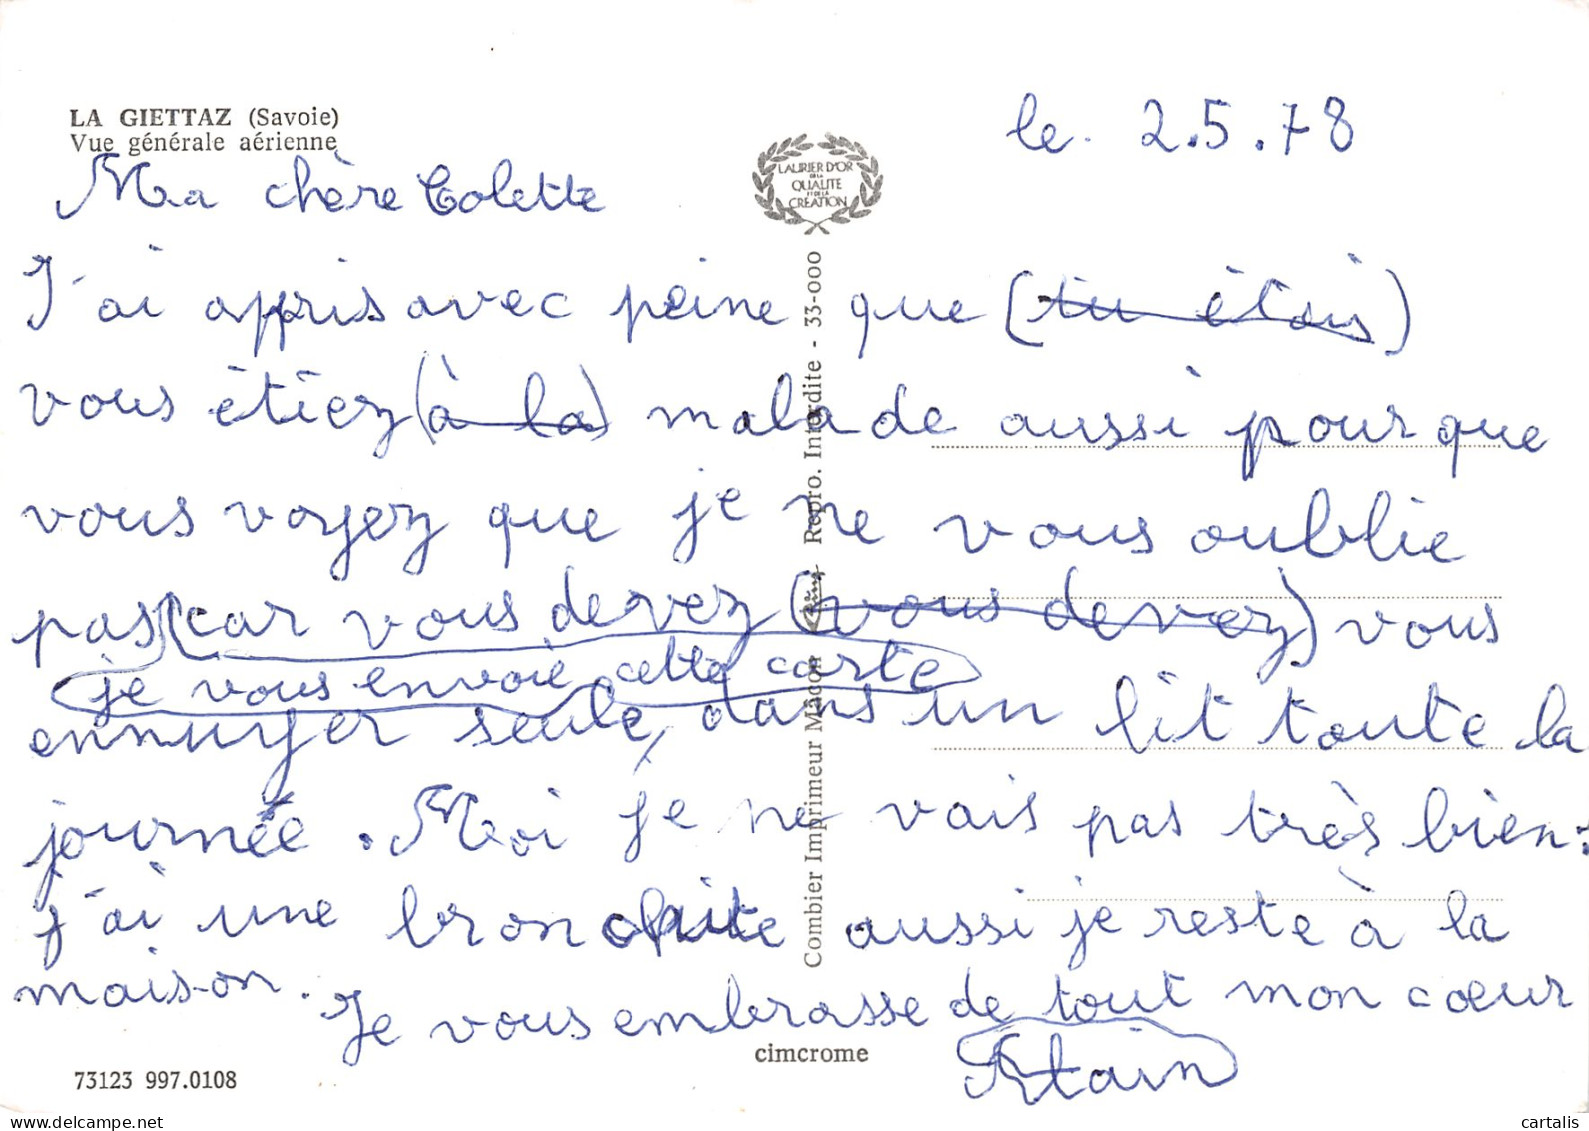 LA GIETTAZ (Savoie)
Vue générale aérienne
le 2.5.78
LAURIER D'OR
DE LA
QUALITE
ET DE LA
CREATION
Ma chère Colette
J'ai appris avec peine que (tu étais)
vous étiez (à la) malade aussi pour que
vous voyez que je ne vous oublie
pas (car vous devez (vous devez) vous
je vous envoie cette carte
ennuyer seule, dans un lit toute la
journée. Moi je ne vais pas très bien:
j'ai une bronchite aussi je reste à la
maison.
Je vous embrasse de tout mon cœur
Combier Imprimeur Mâcon
Repro. Interdite - 33-000
cimcrome
73123 997.0108
www.delcampe.net
cartalis